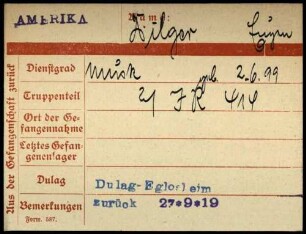 AMERIKA
Name:
Dilger Eugen
Aus der Gefangenschaft zurück
Dienstgrad Musk geb. 2.6.99
Truppenteil 2/ JR 414
Ort der Gefangennahme
Letztes Gefangenenlager
Dulag Dulag-Eglosheim
Bemerkungen zurück 27*9*19
Form. 587.